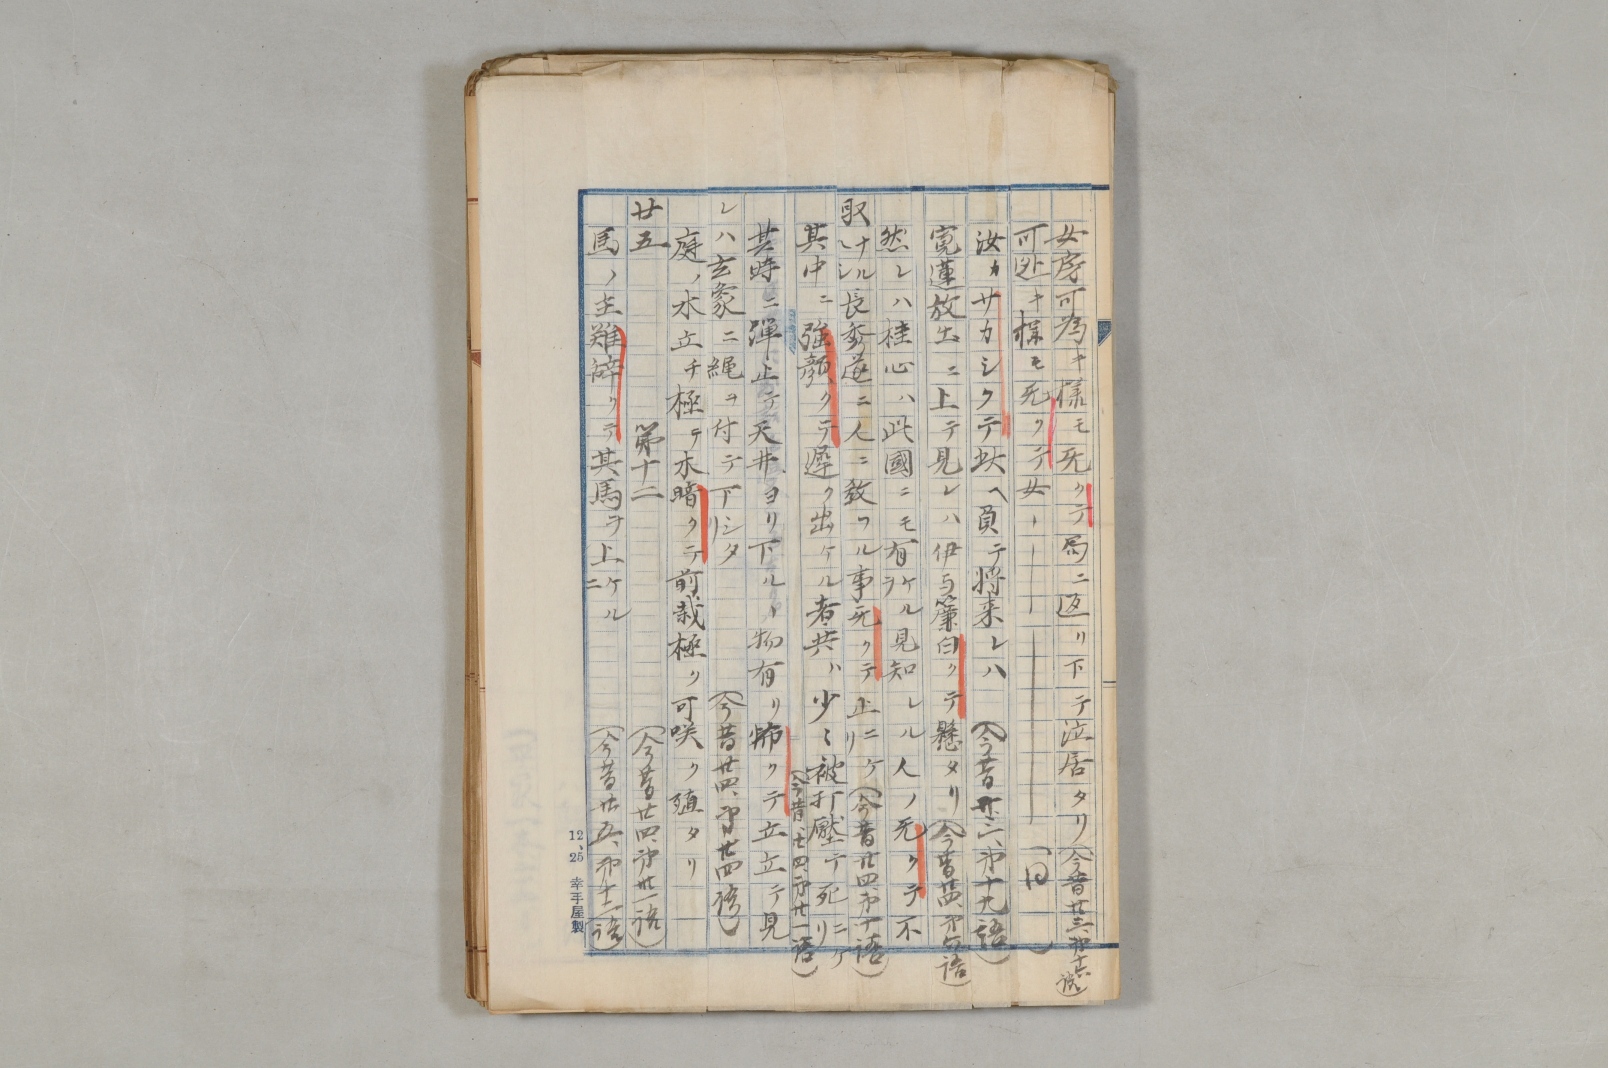 女房可為キ様モ无クテ局ニ返リ下テ泣居タリ(今昔廿三、第十六語)
可迯キ様モ无クテ女ーーーー(同)
汝カサカシクテ此ヘ負テ将来レハ(今昔廿三、第十九語)
寛蓮放出ニ上テ見レハ伊与簾白クテ懸タリ(今昔廿四、第六語)
然レハ桂心ハ此國ニモ有ケル見知レル人ノ无クテ不
取ナル長秀速ニ人ニ教ツル事无クテ止ニケリ(今昔廿四、第十語)
其中ニ強顔クテ遅ク出ケル者共ハ少々被打壓テ死ニケリ(今昔廿四、第廿一語)
其時ニ弾止テ天井ヨリ下ルヽ物有リ怖クテ立立テ見
レハ玄象ニ縄ヲ付テ下シタリ(今昔廿四、第廿四語)
庭ノ木立チ極テ木暗クテ前栽極ク可咲ク殖タリ
(今昔廿四、第廿一語)
廿五 第十二
馬ノ主難辞クテ其馬ヲ上ケルニ(今昔廿五、第十二語)
12、25 幸手屋製